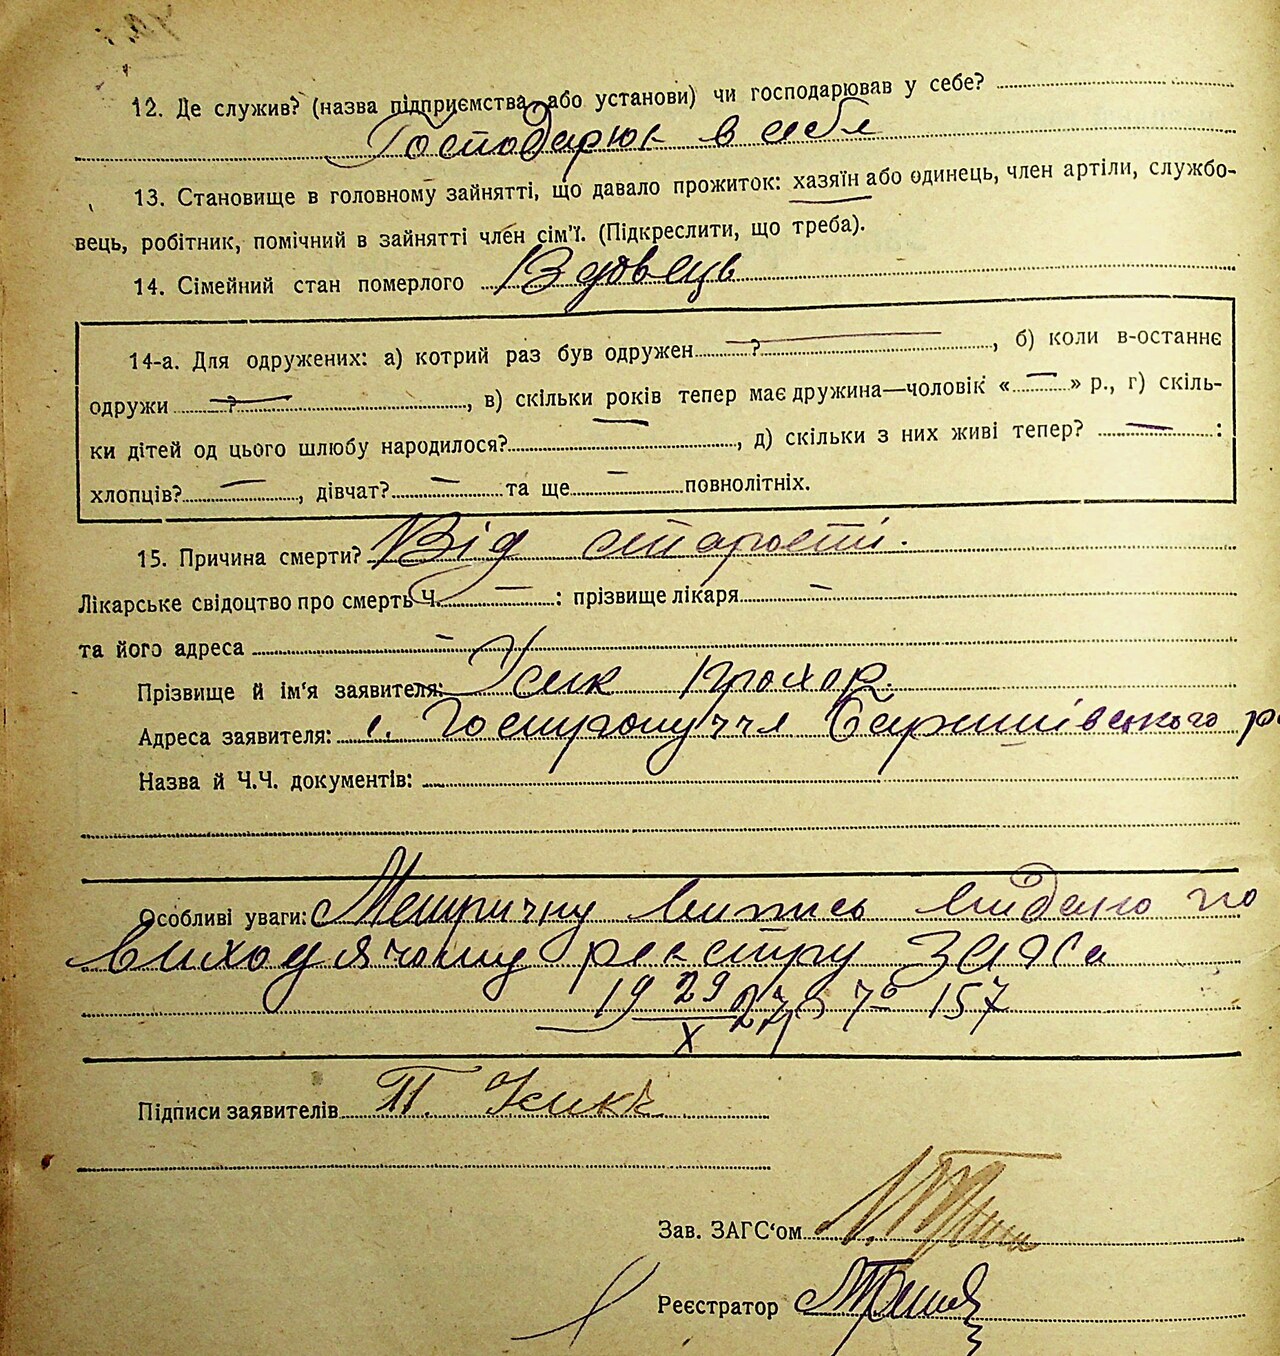 12. Де служив? (назва підприємства або установи) чи господарював у себе?
Господарюк в себе
13. Становище в головному зайнятті, що давало прожиток: хазяїн або одинець, член артіли, службо-
вець, робітник, помічний в зайнятті член сім'ї. (Підкреслити, що треба).
14. Сімейний стан померлого Вдовець
14-а. Для одружених: а) котрий раз був одружен ? —, б) коли в-останнє
одружи ? —, в) скільки років тепер має дружина—чоловік « — » р., г) скіль-
ки дітей од цього шлюбу народилося? —, д) скільки з них живі тепер? — :
хлопців? —, дівчат? — та ще — повнолітніх.
15. Причина смерти? Від старості.
Лікарське свідоцтво про смерть Ч. — : прізвище лікаря —
та його адреса —
Прізвище й ім'я заявителя: Усик Прохор.
Адреса заявителя: с. Гостролуччя Баришівського ра
Назва й Ч.Ч. документів:
Особливі уваги: Метричну випись видано по
виходячому реєстру ЗАГСа
19 29/X 27 157
Підписи заявителів П. Усикъ
Зав. ЗАГС'ом
Реєстратор